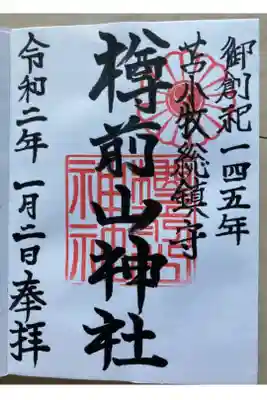 御創祀一四五年
苫小牧総鎮守
樽前山神社
令和二年一月二日奉拝